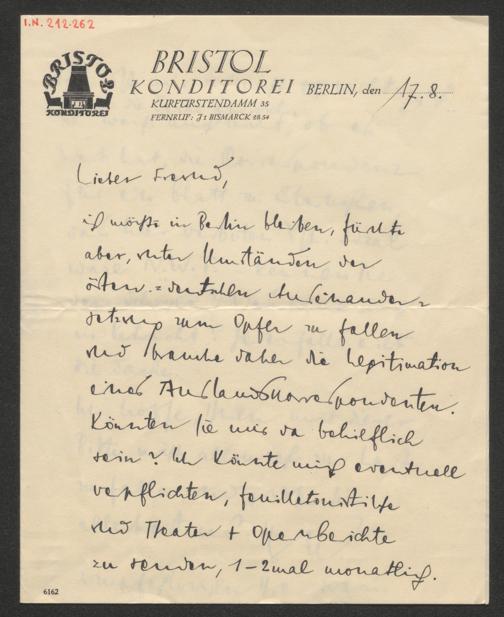 I.N. 212.262
BRISTOL
KONDITOREI
BRISTOL
KONDITOREI
KURFÜRSTENDAMM 35
FERNRUF: J1 BISMARCK 2854
BERLIN, den 17.8.
Lieber Freund,
ich möchte in Berlin bleiben, fürchte
aber, unter Umständen der
österr.=deutschen Auseinander=
setzung zum Opfer zu fallen
und brauche daher die Legitimation
eines Auslandskorrespondenten.
Könnten Sie mir da behilflich
sein? Ich könnte mich eventuell
verpflichten, feuilletonistische
und Theater + Opernberichte
zu senden, 1-2mal monatlich.
6162